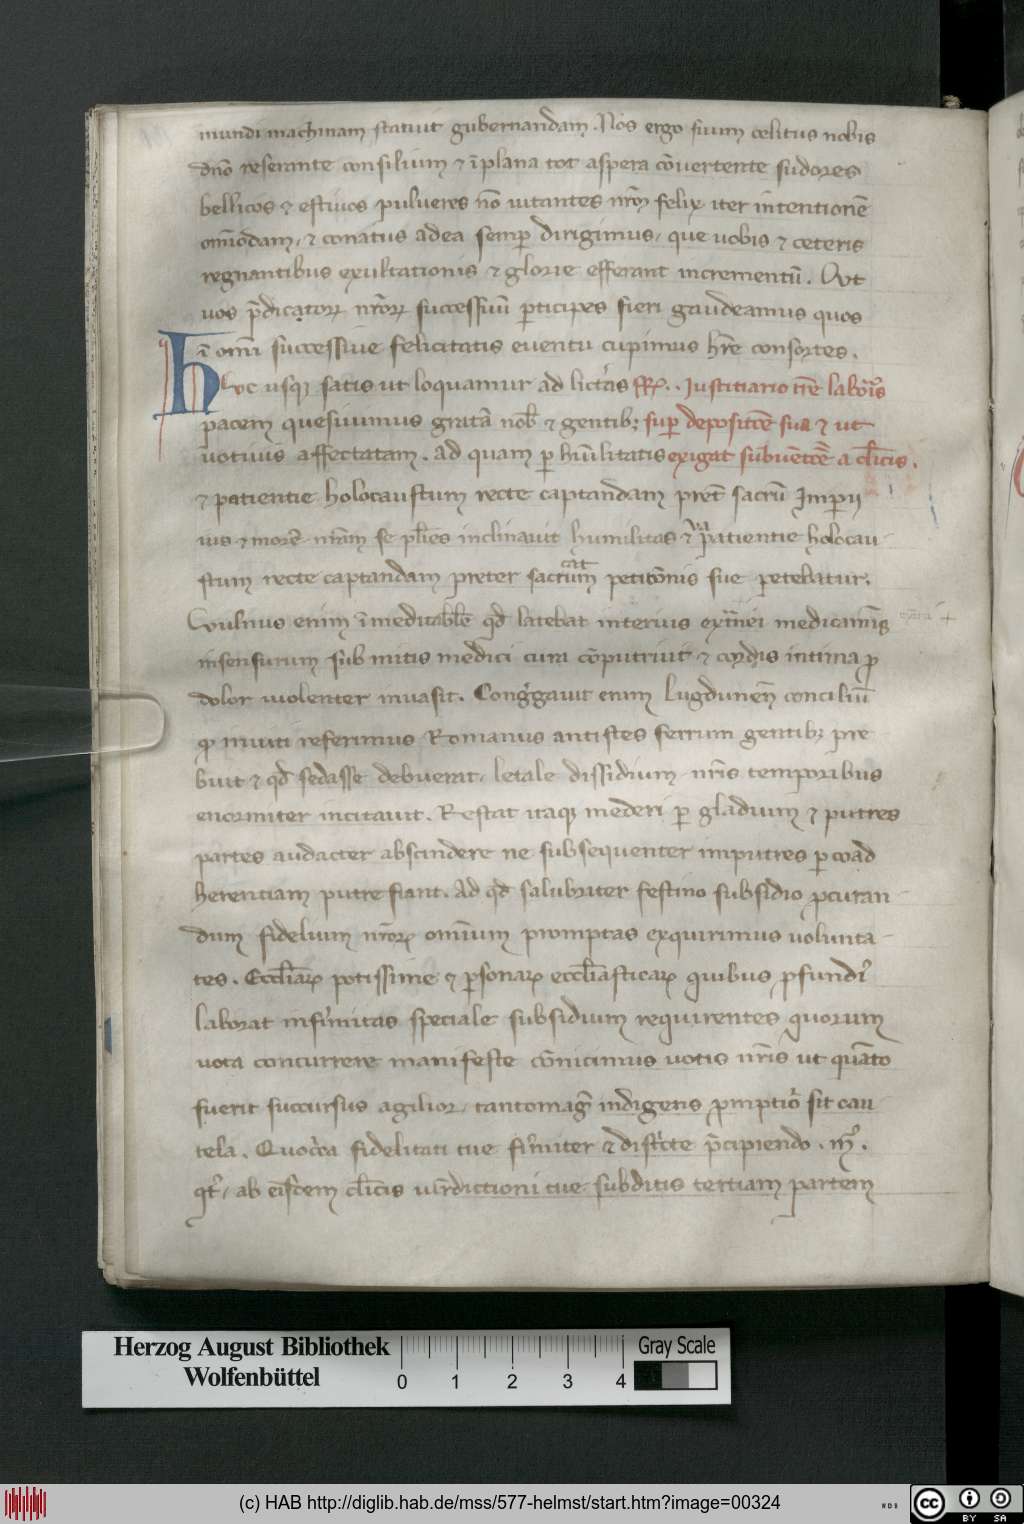 mundi machinam statuit gubernandam. Nos ergo suum celitus nobis
dnō reserante consilium ⁊ ī plana tot aspera cōuertente sudores
bellicos ⁊ estiuos pulueres nō uitantes nr̄m felix iter intentionē
omīodam, ⁊ conatus ad ea semꝑ dirigimus, que uobis ⁊ ceteris
regnantibus exultationis ⁊ glorie efferant incrementū. Vt
uos p̄dicatorꝝ nr̄orꝝ successuū ꝑticipes fieri gaudeamus quos
ī omī successiue felicitatis euentu cupimus hr̄e consortes.
Huc usqꝫ satis ut loquamur ad lict̄as Iustitiario tr̄e laborꝭ
pacem quesiuimus gratā nob̄ ⁊ gentibꝫ suꝑ deposit̄ōe sua ⁊ ut
uotiuis affectatam. ad quam ꝑ humilitatis exigat subuēt̄ōe a cl̄icis.
⁊ patientie holocaustum recte captandam pret̄ sacrū Imꝑii
ius ⁊ morē nr̄am se pl̄ies inclinauit humilitas ⁊ patientie holocau
stum recte captandam preter sacrum petitōnis sue petebatur,
Vulnus enim īmedicab̄le qd̄ latebat interius ext̄nei medicaminꝭ
insensurum sub mitis medici cura cōputruit ⁊ cordis intima ꝓ
dolor uiolenter inuasit. Congᵃgauit enim Lugdunen̄ conciliū
ꝙ inuiti referimus Romanus antistes ferrum gentibꝫ pre
buit ⁊ qd̄ sedasse debuerat, letale dissidium nr̄is temporibus
enormiter incitauit. Restat itaqꝫ mederi ꝑ gladium ⁊ putres
partes audacter abscindere ne subsequenter imputres ꝑ coad
herentiam putre fiant. Ad qd̄ salubriter festino subsidio ꝓcuran
dum fidelium nr̄orꝝ omīum promptas exquirimus uolunta
tes. Eccl̄iarꝝ potissime ⁊ ꝑsonarꝝ eccl̄iasticarꝝ quibus ꝓfundiꝰ
laborat infirmitas speciale subsidium requirentes quorum
uota concurrere manifeste cōnicimus uotis nr̄is ut quāto
fuerit succursus agilior, tantomaḡ indigenis ꝓmptiō sit cau
tela. Quoc̄ca fidelitati tue firmiter ⁊ district̄e p̄cipiendo. m̄.
qᵗ, ab eisdem cl̄icis iurᵃdictioni tue subditis tertiam partem
Herzog August Bibliothek
Wolfenbüttel
0 1 2 3 4
Gray Scale
(c) HAB http://diglib.hab.de/mss/577-helmst/start.htm?image=00324
WDB
cc BY SA